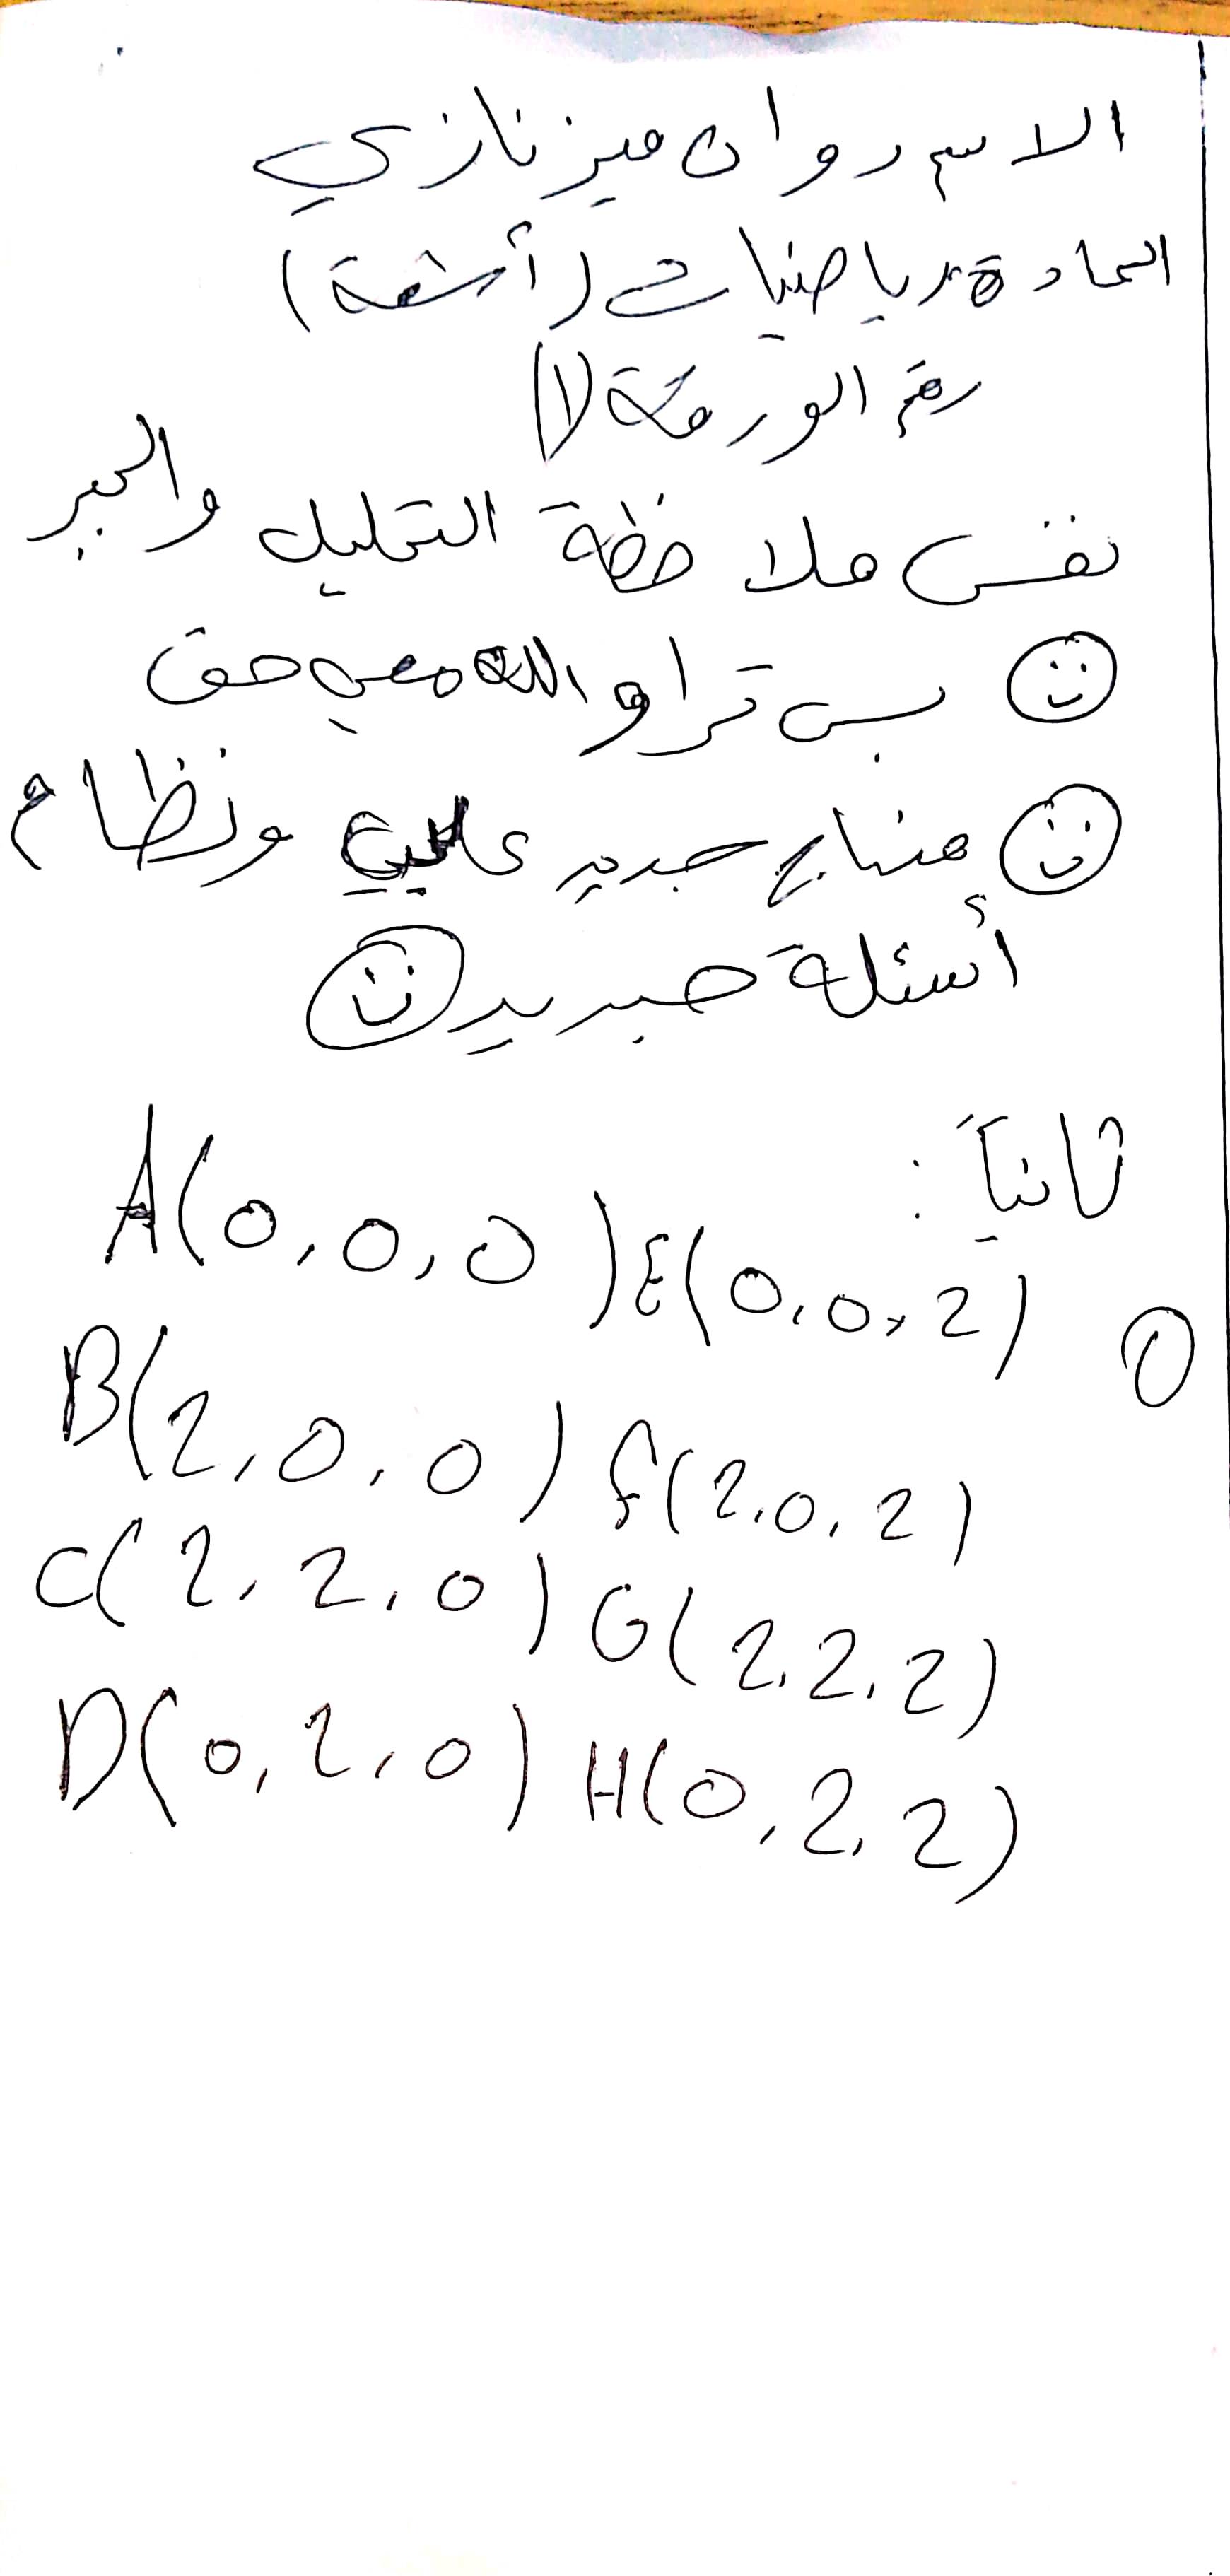 الاسم روان ميزنازي
المادة رياضيات (أشعة)
رقم الورقة (1)
نفس ملاحظة التحليل والجبر
بس ترا والله معي حق
منهاج جديد علينا ونظام
أسئلة جديد
ثانياً:
①
A(0,0,0) E(0,0,2)
B(2,0,0) F(2,0,2)
C(2,2,0) G(2,2,2)
D(0,2,0) H(0,2,2)